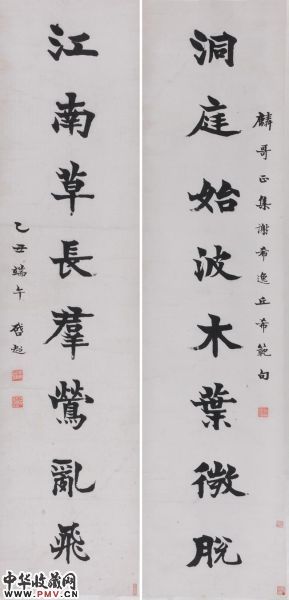 麟哥正集謝希逸丘希範句
洞庭始波木葉微脫
江南草長群鶯亂飛
乙丑端午 啓超
中华收藏网
www.PMV.cn